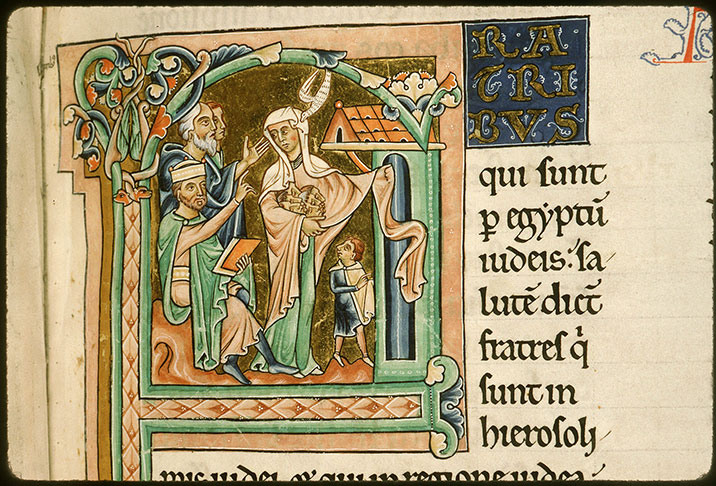 RA
TRI
BVS
qui sunt
p egyptū
iudeis: sa
lutē dict̄
fratres q̇
sunt in
hierosoli
mis iudei